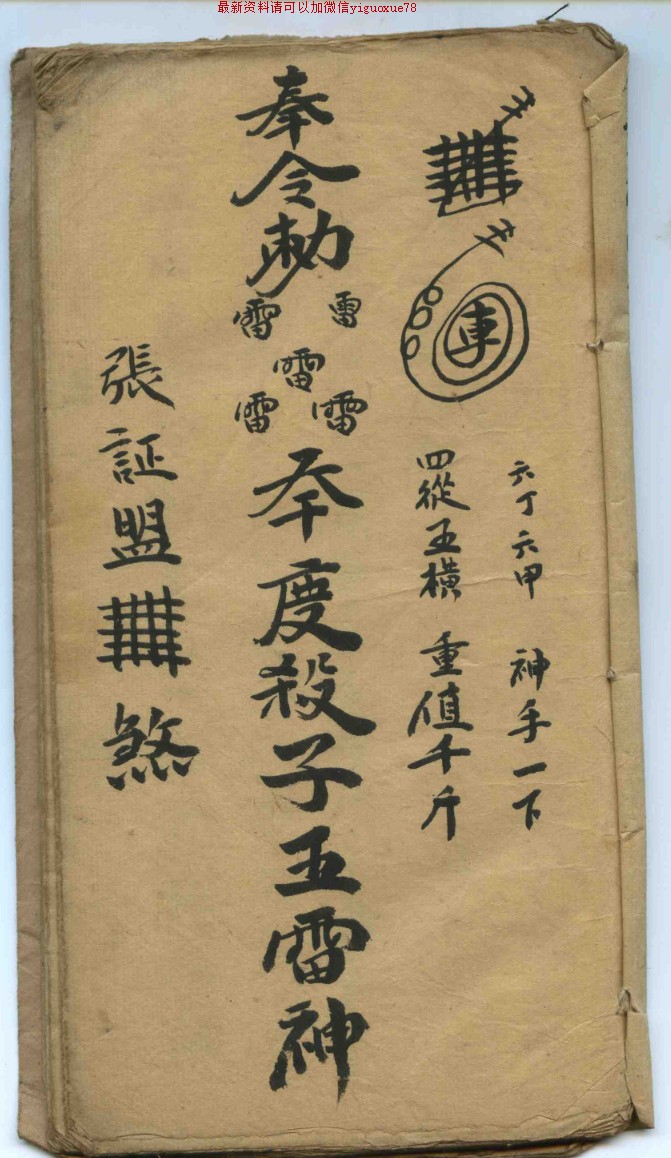 最新资料请可以加微信yiguoxue78
六丁六甲 神手一下
車
四從五橫 重值千斤
奉令勅
雷 雷
雷
雷 雷
夲度殺子五雷神
張証盟 煞